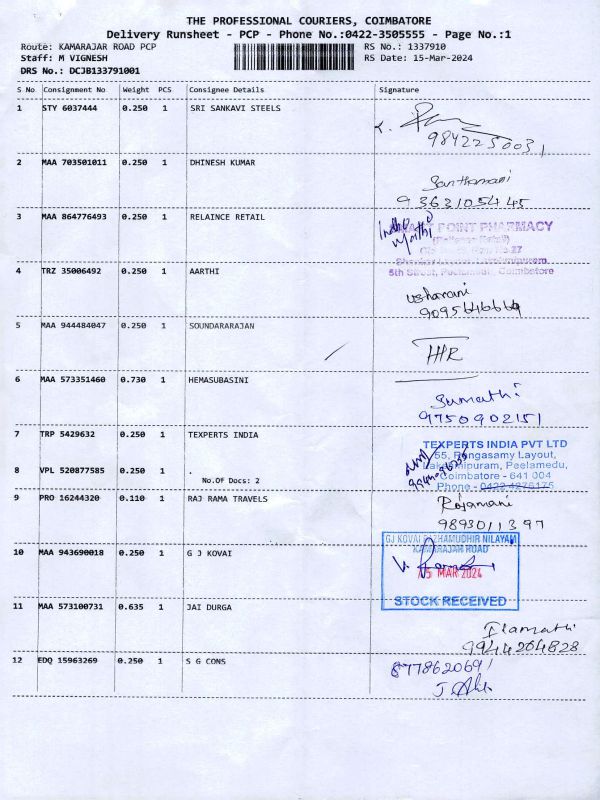 THE PROFESSIONAL COURIERS, COIMBATORE
Delivery Runsheet - PCP - Phone No.:0422-3505555 - Page No.:1
Route: KAMARAJAR ROAD PCP
RS No.: 1337910
Staff: M VIGNESH
RS Date: 15-Mar-2024
DRS No.: DCJB133791001
S No Consignment No Weight PCS Consignee Details Signature
1 STY 6037444 0.250 1 SRI SANKAVI STEELS
9842250031
2 MAA 703501011 0.250 1 DHINESH KUMAR
Santhamani
9363105445
3 MAA 864776493 0.250 1 RELAINCE RETAIL
POINT PHARMACY
5th Street, Peelamedu, Coimbatore
4 TRZ 35006492 0.250 1 AARTHI
usharani
5 MAA 944484047 0.250 1 SOUNDARARAJAN
6 MAA 573351460 0.730 1 HEMASUBASINI
Sumathi
9750902151
7 TRP 5429632 0.250 1 TEXPERTS INDIA
TEXPERTS INDIA PVT LTD
55, Rengasamy Layout,
Lakshmipuram, Peelamedu,
8 VPL 520877585 0.250 1 .
Coimbatore - 641 004
No.OF Docs: 2
Phone - 0422 4276175
9 PRO 16244320 0.110 1 RAJ RAMA TRAVELS
Rajamani
9893011397
10 MAA 943690018 0.250 1 G J KOVAI
GJ KOVAI PAZHAMUDHIR NILAYAM
KAMARAJAR ROAD
15 MAR 2024
STOCK RECEIVED
11 MAA 573100731 0.635 1 JAI DURGA
Ilamathi
9944264828
12 EDQ 15963269 0.250 1 S G CONS
8778620691